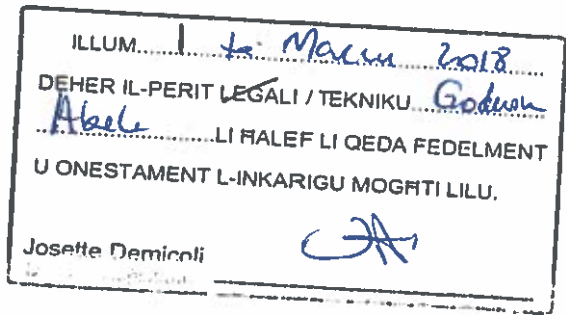 ILLUM........1 ta Marzu 2018
DEHER IL-PERIT LEGALI / TEKNIKU Godwin
Abela..........LI ĦALEF LI QEDA FEDELMENT
U ONESTAMENT L-INKARIGU MOGĦTI LILU.
Josette Demicoli